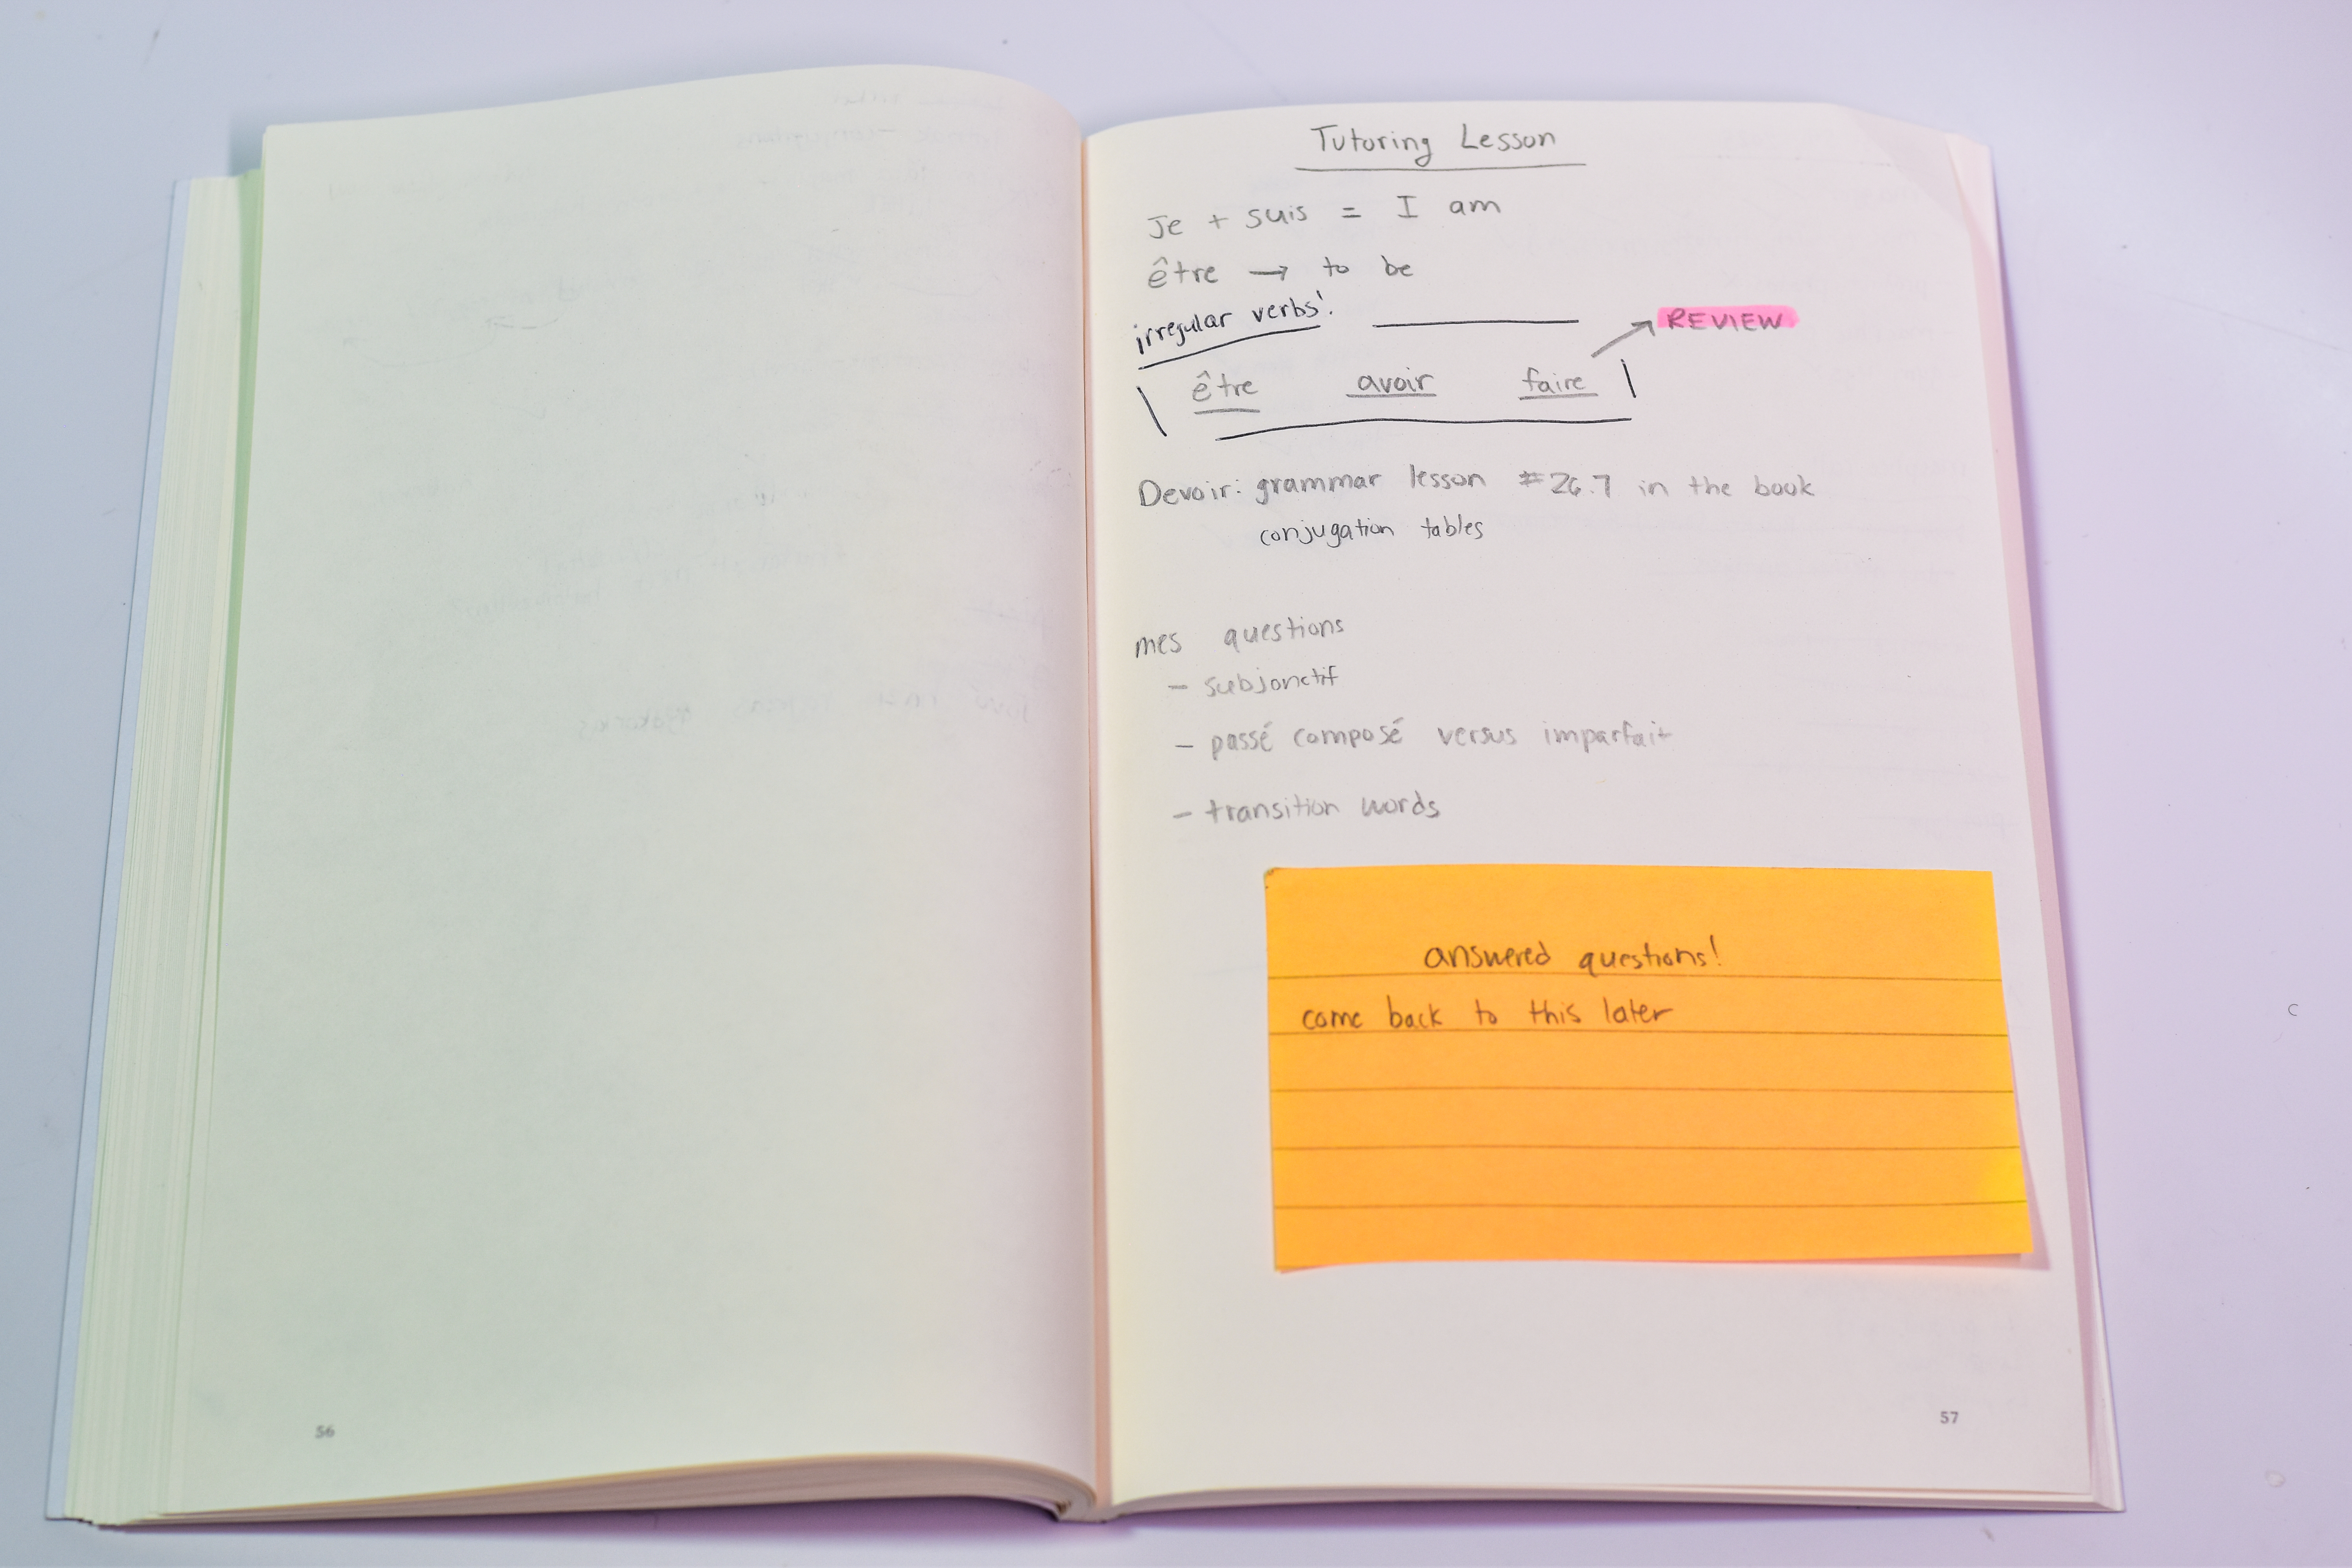 Tutoring Lesson
Je + suis = I am
être → to be
irregular verbs!
REVIEW
être avoir faire
Devoir: grammar lesson #26.7 in the book
conjugation tables
mes questions
- subjonctif
- passé composé versus imparfait
- transition words
answered questions!
come back to this later
56
57